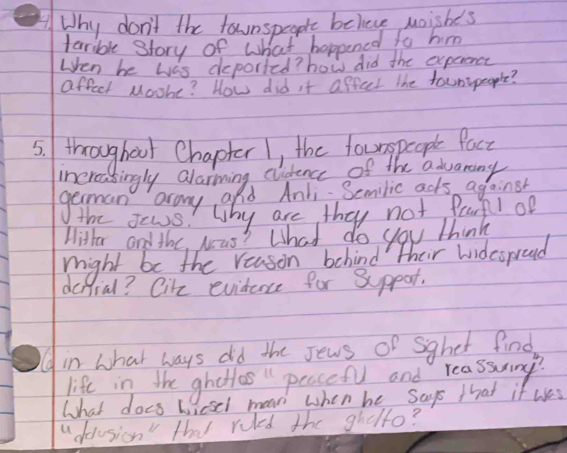 4. Why don't the townspeople believe Moishe's
terrible Story of what happened to him
when he was deported? how did the experience
affect Moshe? How did it affect the townspeople?
5. throughout Chapter 1, the townspeople face
increasingly alarming evidence of the advancing
german army and Anti-Semitic acts against
the Jews. Why are they not fearful of
Hitler and the Nazis? What do you think
might be the reason behind their widespread
denial? Cite evidence for Support.
6 in what ways did the Jews of Sighet find
life in the ghettos "peaceful and reassuring"?
What does Wiesel mean when he says that it was
"delusion" that ruled the ghetto?